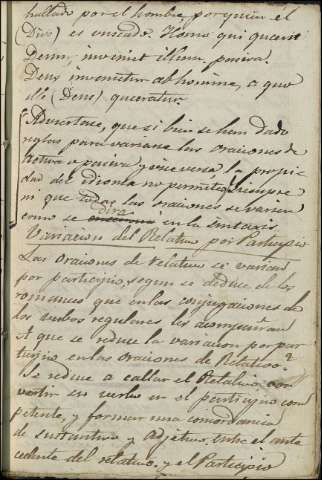 hallado por el hombre, por quien él
(Dios) es buscado. Homo qui quaerit
Deum, invenit illum, pasiva.
Deus invenitur ab homine, a quo
ille (Deus) quaeratur.
Adviertase, que si bien se han dado
reglas para variarse las oraciones de
activa a pasiva y vice versa, la propie
dad del idioma no permite siempre
ni que todas las oraciones se varien
como se dirá en la sintaxis
Variacion del Relativo por Participio
Las oraciones de relativo se varian
por participio, segun se deduce de los
romances que en las conjugaciones de
los verbos regulares les acompañan
A que se reduce la variacion por par
ticipio en las oraciones de Relativo?
Se reduce a callar el Relativo, con
vertir su verbo en el participio com
petente, y formar una concordancia
de sustantivo y adjetivo, entre el ante
cedente del relativo, y el Participio